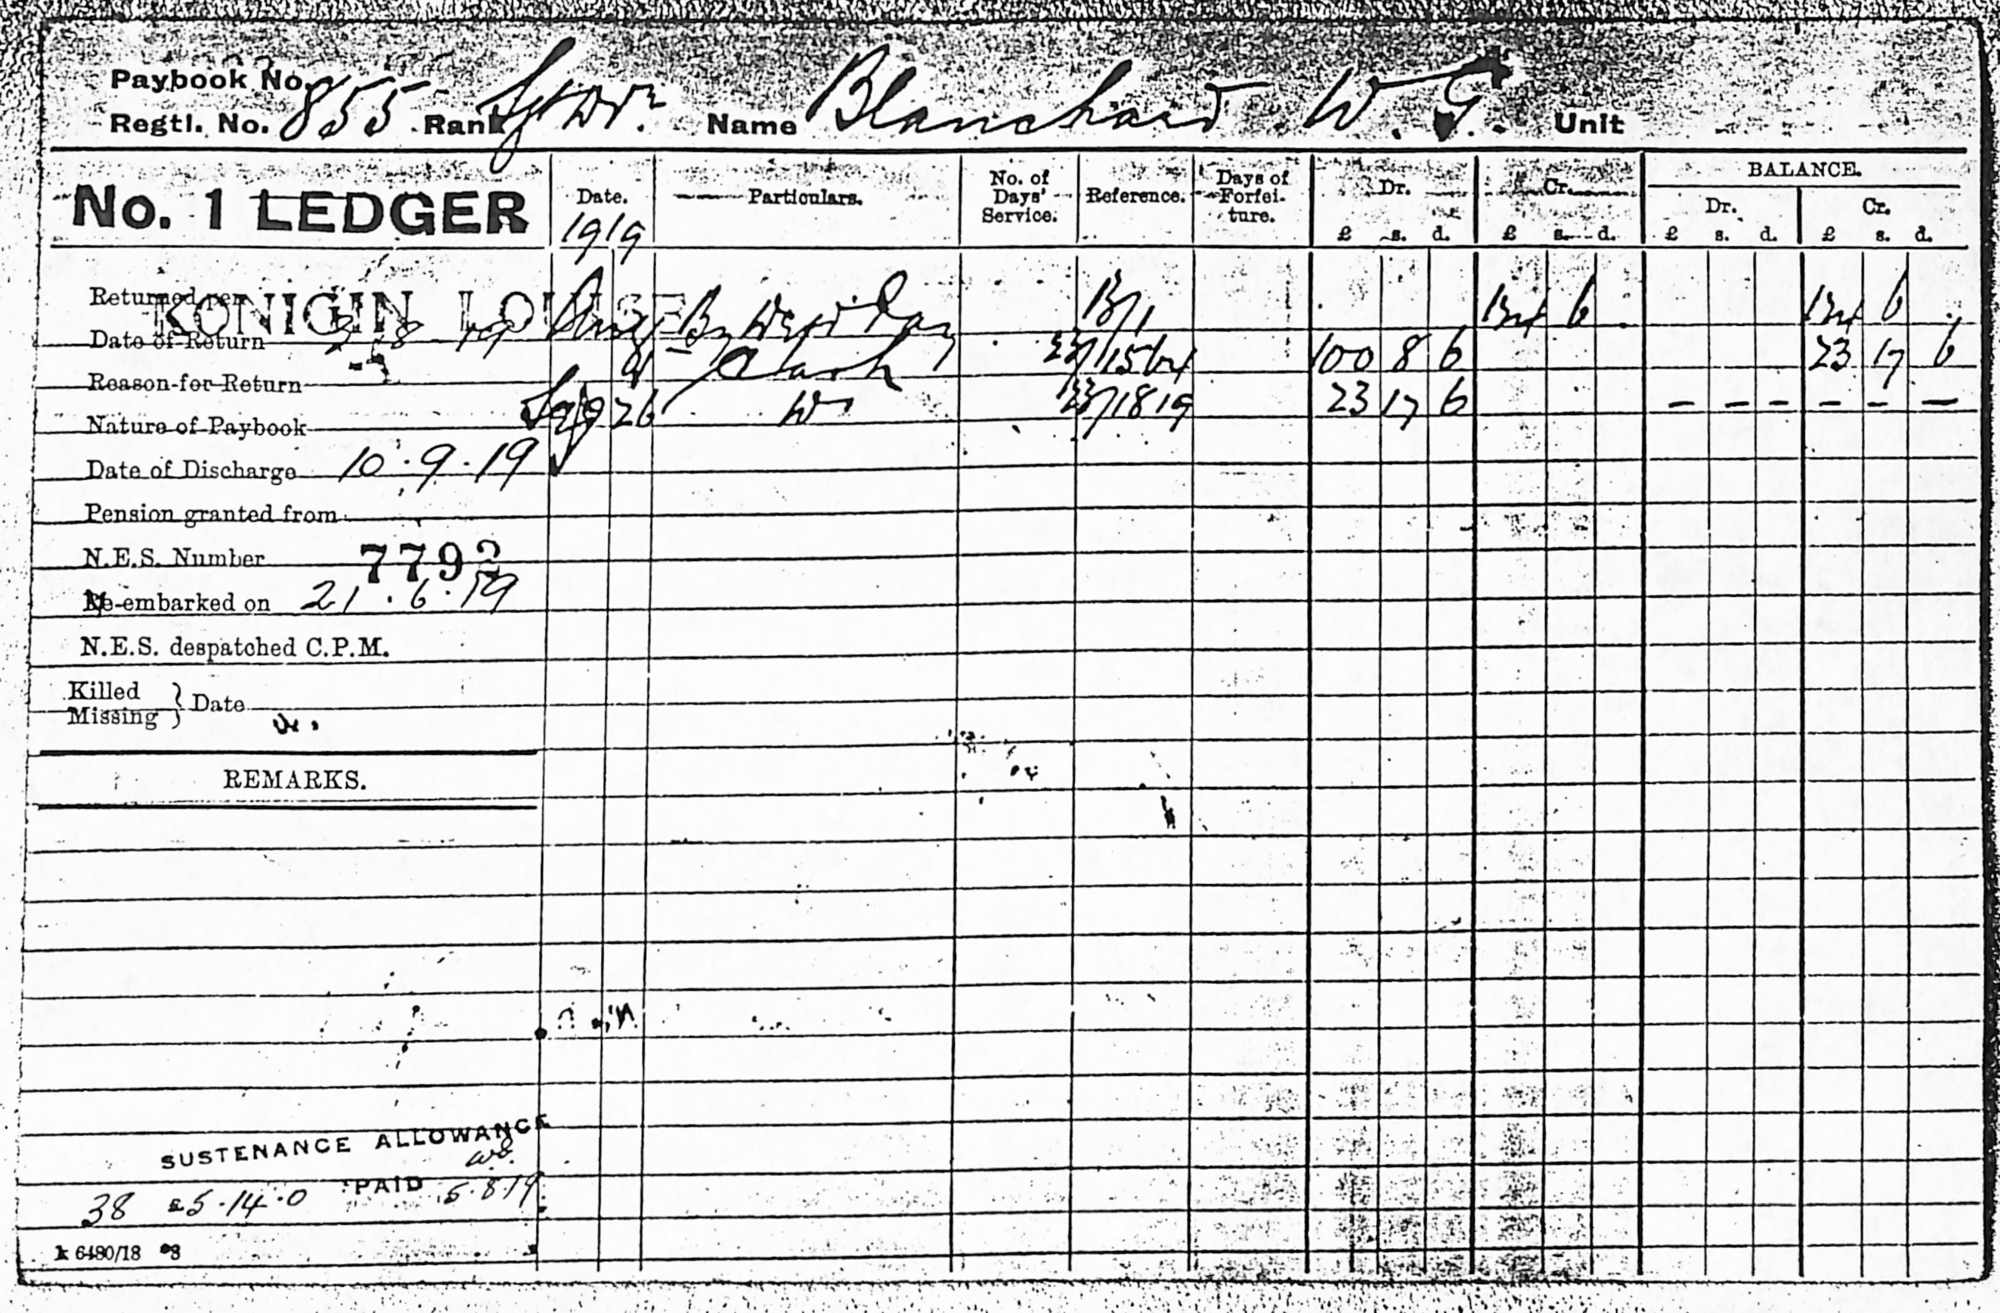 Paybook No.
Regtl. No. 855 Rank Name Blanchard W. G. Unit
No. 1 LEDGER
Date. 1919 Particulars. No. of Days' Service. Reference. Days of Forfeiture. Dr. £ s. d. Cr. £ s. d. BALANCE. Dr. £ s. d. Cr. £ s. d.
Returned per KONIGIN LOUISE Aug By Defd Pay B/1 124 6 124 6
Date of Return 3 8 19 Cash 100 8 6 23 17 6
Reason for Return
Nature of Paybook 26 23 17 6 — — — — — —
Date of Discharge 10.9.19
Pension granted from
N.E.S. Number 7792
-embarked on 21.6.19
N.E.S. despatched C.P.M.
Killed
Missing } Date
REMARKS.
SUSTENANCE ALLOWANCE
38 £5.14.0 PAID 5.8.19
6480/18